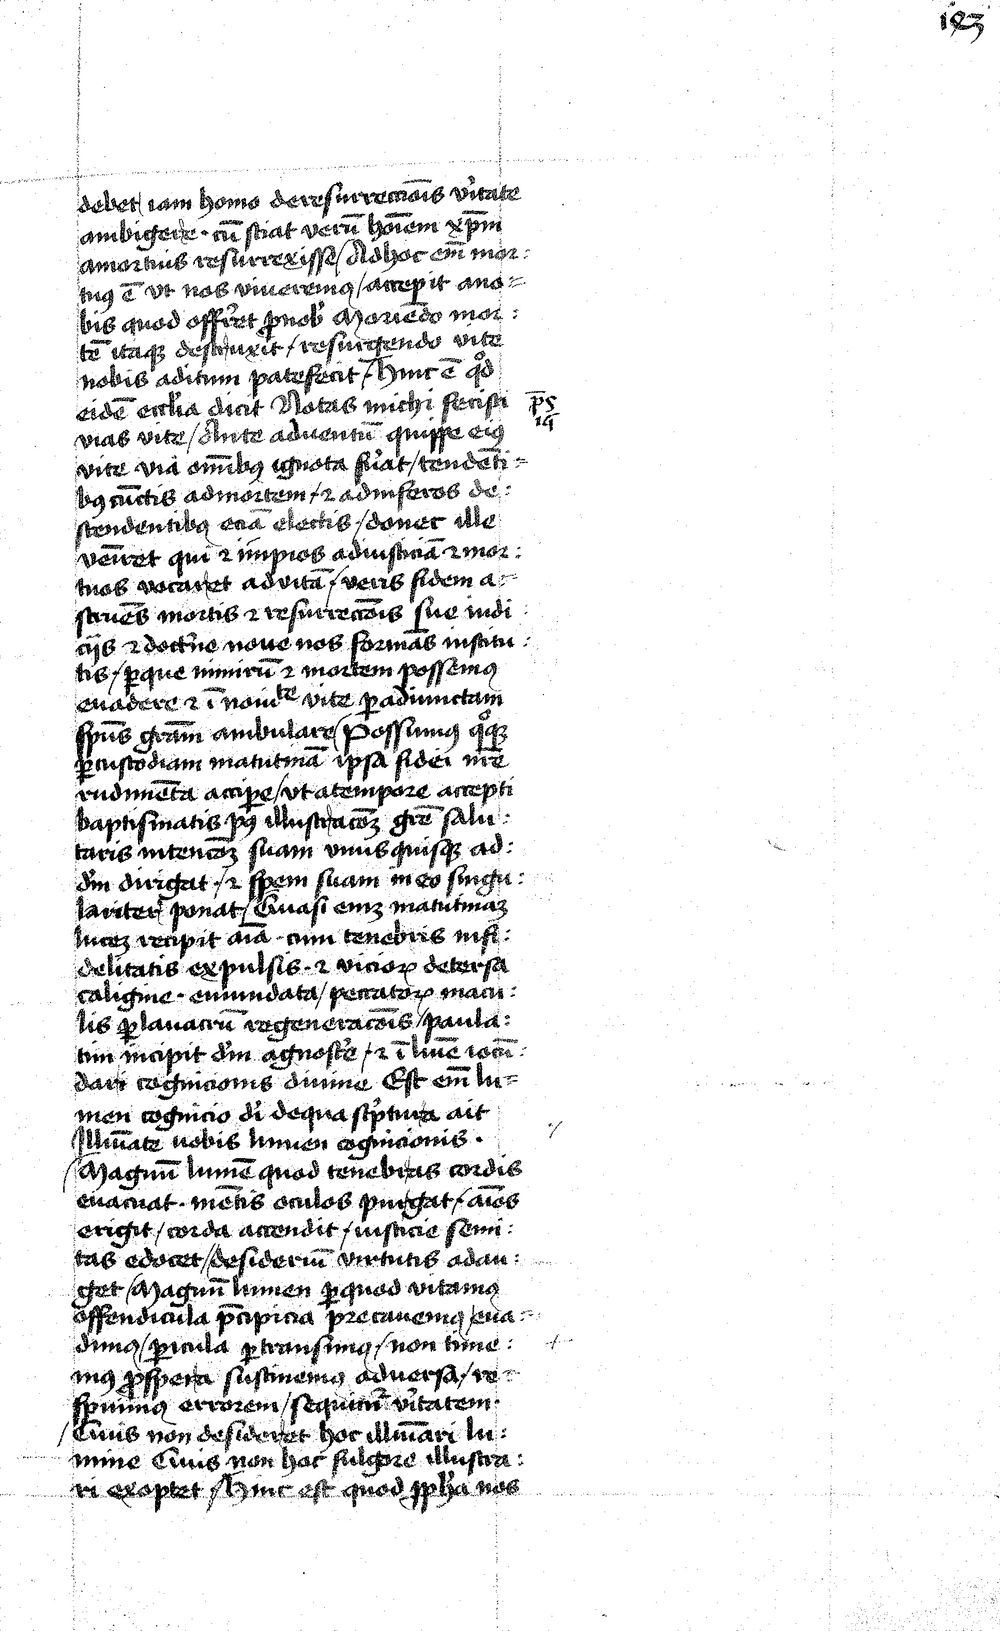 193
debet / iam homo de resurrectiōis v̓itate
ambigere · cū sciat verū hoīem xp̄m
a mortuis resurrexisse / Ad hoc em̄ mor :
tuꝰ ē vt nos viueremꝰ / accepit a no =
bis quod offr̓et ꝓ nob̓ Moriēdo mor :
tē itaqꝫ destruxit / resurgendo vite
nobis aditum patefecit / Hinc ē qͦd
eidē eccl̓ia dicit Notas michi fecisti
ps
vias vite / Ante aduentū quippe eiꝰ
vite via om̄ibꝰ ignota fu̓at / tendēti =
bꝰ cūctis ad mortem / ⁊ ad inferos de :
scendentibꝰ eciā electis / donec ille
veīret qui ⁊ impios ad iusticiā ⁊ mor :
tuos vocaret ad vitā / veris fidem a =
struēs mortis ⁊ resurrectōis sue indi
ciis ⁊ doctr̓ne noue nos formās institu :
tis / ꝑ que nimirū ⁊ mortem possemꝰ
euadere ⁊ ī nouitate vite ꝑ adiunctam
sp̄us grām ambulare / Possumꝰ qͦqꝫ
ꝑ custodiam matutinā ipsa fidei nr̄e
rudimēta accipe / vt a tempore accepti
baptismatis pꝰ illustracōꝫ gr̄e salu :
taris intencōꝫ suam vnusquisqꝫ ad :
dm̄ dirigat / ⁊ spem suam in eo singu :
lariter ponat / Quasi eniꝫ matutinaꝫ
luceꝫ recipit aīa · cum tenebris infi :
delitatis expulsis · ⁊ vicioꝝ detersa
caligine · emundata / peccatoꝝ macu :
lis ꝑ lauacrū regeneracōis / paula :
tim incipit dm̄ agnosce̓ / ⁊ ī lumē iocū :
dari cognicionis diuine Est em̄ lu =
men cognicio di̓ de qua sc̓ptura ait
Illuīate uobis lumen cognicionis ·
/ Magnū lumē quod tenebras cordis
euacuat · mētis oculos purgat / aīos
erigit / corda accendit / iusticie semi :
tas edocet / desideriū virtutis adau :
get / Magnū lumen ꝑ quod vitamꝰ
offendicula p̄cipicia precauemꝰ / eua =
dimꝰ / ꝑicula ꝑtransimꝰ / non time :
mꝰ ꝓspera sustinemꝰ aduersa / re =
spuimꝰ errorem / sequim̓ v̓itatem ·
/ Quis non desideret hoc illuīari lu :
mine Quis non hoc fulgore illustra :
ri exoptet / Hinc est quod ꝓph̓a nos